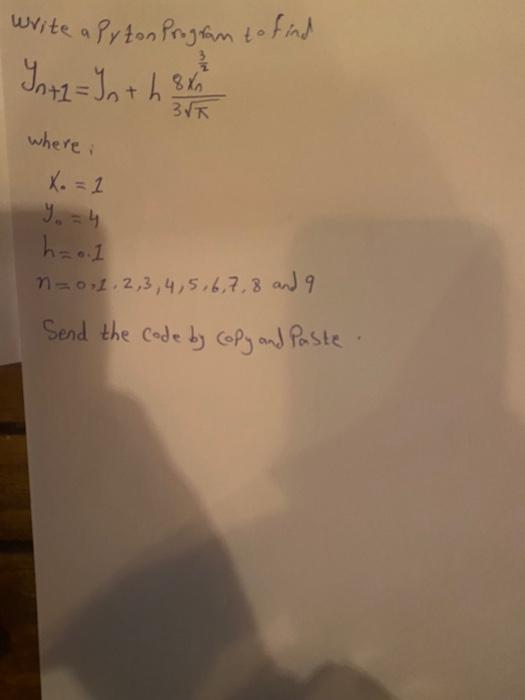 Write a Pyton Program to find
yₙ₊₁ = yₙ + h 8xₙ^(3/2) / 3√π
where;
x₀ = 1
y₀ = 4
h=0.1
n=0,1,2,3,4,5,6,7,8 and 9
Send the code by copy and Paste.